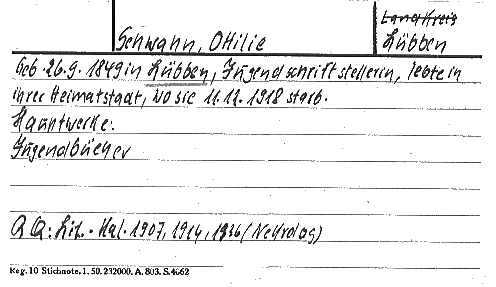 Landkreis
Schwann, Ottilie
Lübben
Geb. 26.9.1849 in Lübben, Jugendschriftstellerin, lebte in
ihrer Heimatstadt, wo sie 11.12.1918 starb.
Hauptwerke:
Jugendbücher
QQ: Lit.-Kal. 1907, 1914, 1936 (Nekrolog)
Reg. 10 Stichnote. 1. 50. 232000. A. 803. S. 4662